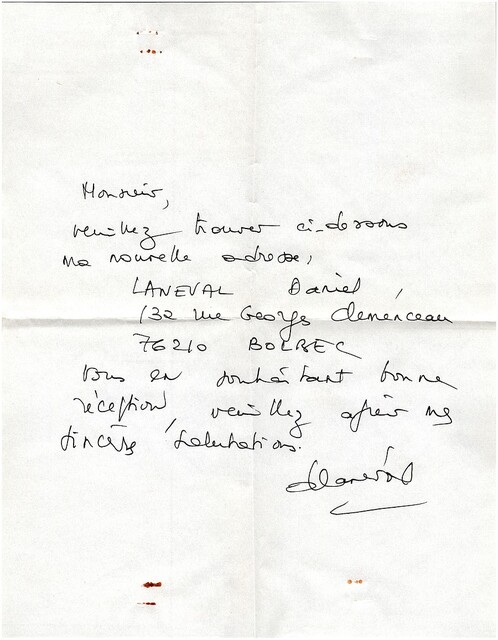 Monsieur,
veuillez trouver ci-dessous
ma nouvelle adresse,
LANEVAL Daniel
132 rue Georges Clemenceau
76210 BOLBEC
Vous en souhaitant bonne
réception, veuillez agréer mes
sincères salutations.
DLaneval